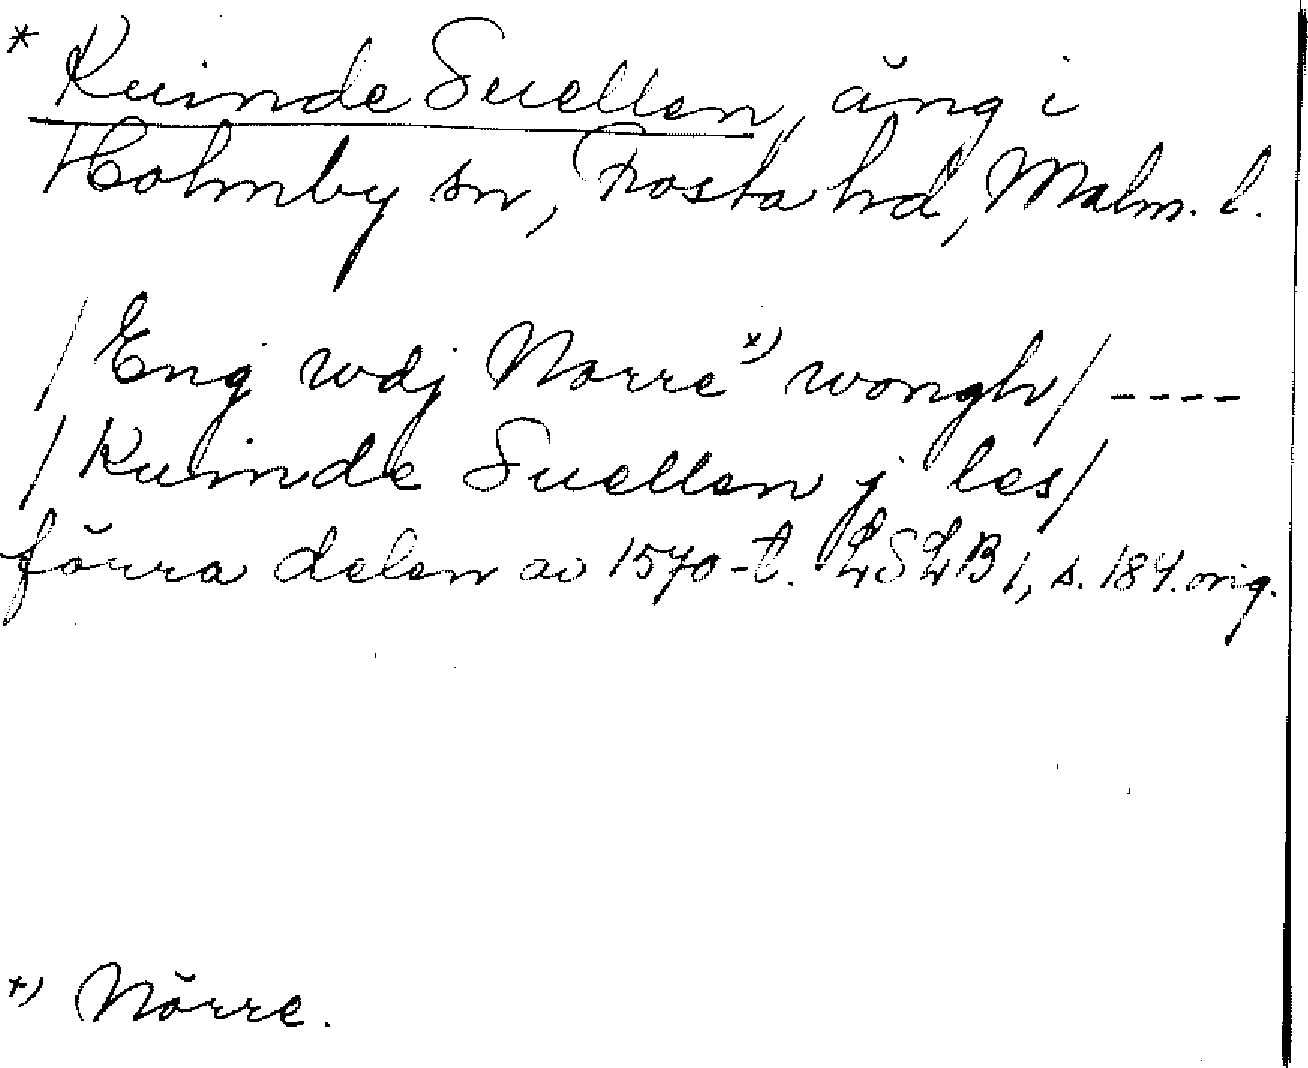 * Kuinde Suellen, äng i
Holmby sn, Frosta hd, Malm. l.
/ Eng wdj Norre *) wongh / ----
/ Kuinde Suellen j les /
förra delen av 1570-t. LSLB 1, s. 184. orig.
*) Nörre.